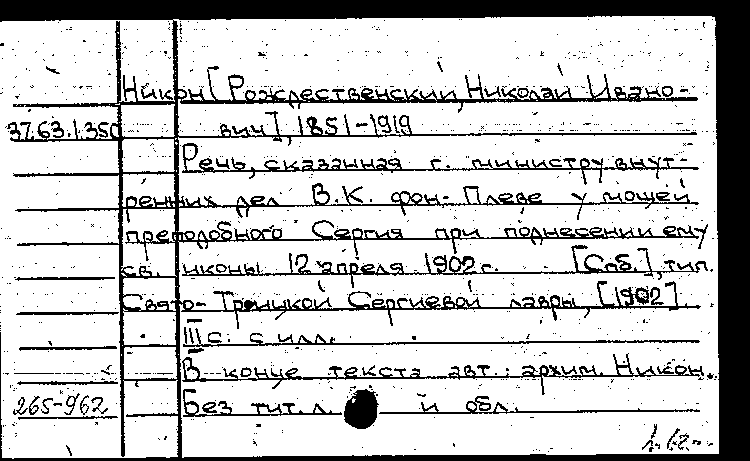 Никон [Рождественский, Николай Ивано-
37.63.1.350 вич], 1851-1919
Речь, сказанная г. министру внут-
ренних дел В.К. фон-Плеве у мощей
преподобного Сергия при поднесении ему
св. иконы 12 апреля 1902 г. [Спб.], тип.
Свято-Троицкой Сергиевой лавры, [1902].
III с. с илл.
В конце текста авт.: архим. Никон.
265-962 Без тит. л. и обл.